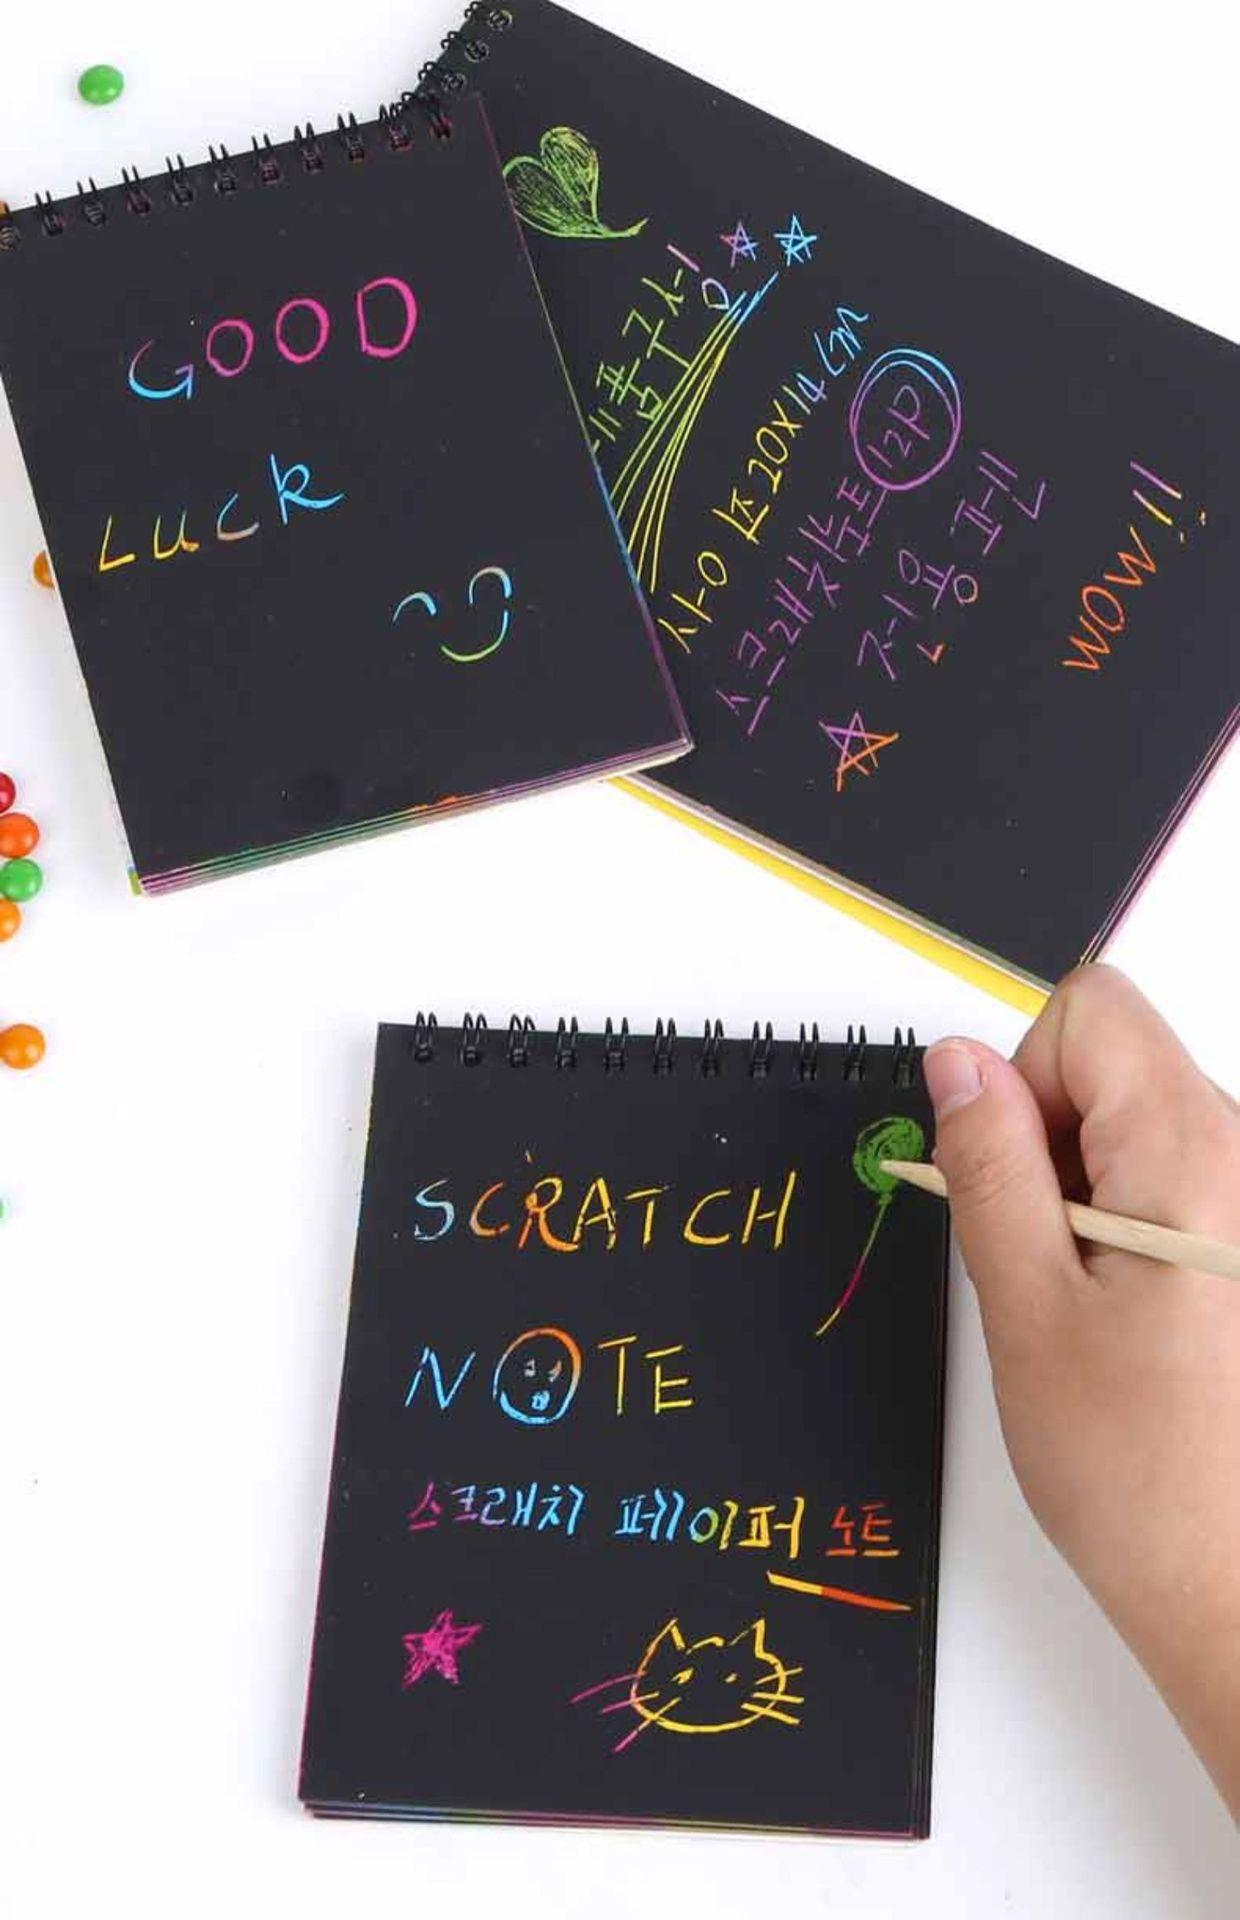 GOOD
LUCK
제품구성
사이즈 20X14CM
스크래치노트 12P
전용 펜
WOW!!
SCRATCH
NOTE
스크래치 페이퍼 노트